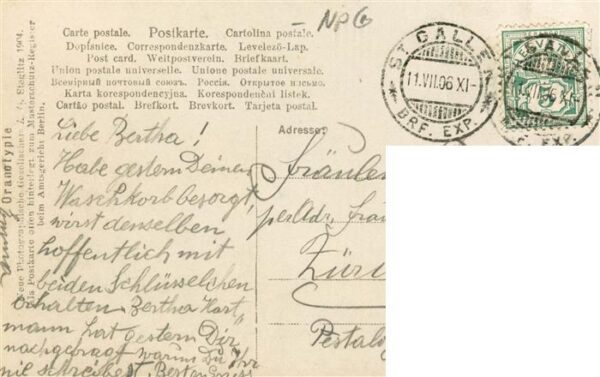 NPG
Carte postale. Postkarte. Cartolina postale.
Dopisnice. Correspondenzkarte. Levelező-Lap.
Post card. Weltpostverein. Briefkaart.
Union postale universelle. Unione postale universale.
Всемірный почтовый союзъ. Россія. Открытое письмо.
Karta korespondencyjna. Korespondenční listek.
Cartão postal. Brefkort. Brevkort. Tarjeta postal.
ST. GALLEN
11.VII.06 XI-
BRF. EXP.
HELVETIA
5
Oranotypie
Neue Photographische Gesellschaft A. G. Steglitz 1904.
Als Postkarte offen hinterlegt zum Musterschutz-Register
beim Amtsgericht Berlin.
Adresse:
Liebe Bertha!
Habe gestern Deinen
Waschkorb besorgt,
wirst denselben
hoffentlich mit
beiden Schlüsselchen
erhalten. Bertha Hart
mann hat gestern Dir
nachgefragt warum Du Ihr
nie schreibest. Besten Gruss
Fräulein
per Adr. Frau
Züri
Pestalo